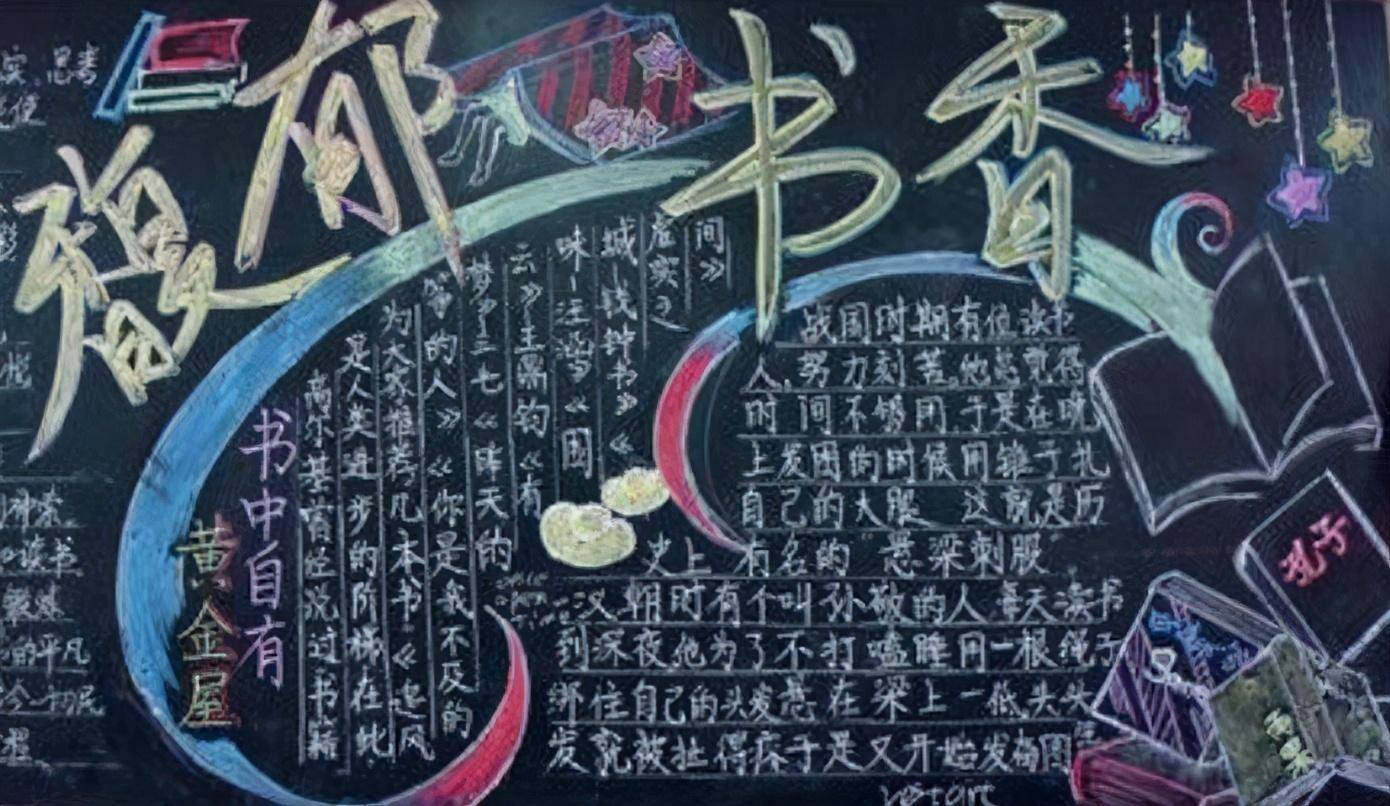 馥郁书香
思考
书中自有
黄金屋
高尔基曾经说过书籍
是人类进步的阶梯在此
为大家推荐几本书《追风
筝的人》《你是我不及的
梦》三毛《昨天的
云》王鼎钧《有
味 汪曾《围
城 钱钟书》《
虚实之
间》
战国时期有位读书
人,努力刻苦,他总觉得
时间不够用于是在晚
上发困的时候用锥子扎
自己的大腿 这就是历
史上有名的 悬梁刺股
汉朝时有个叫孙敬的人每天读书
到深夜他为了不打瞌睡用一根绳子
绑住自己的头发悬在梁上一低头头
发就被扯得疼于是又开始发奋图
孔子
读书
的平凡